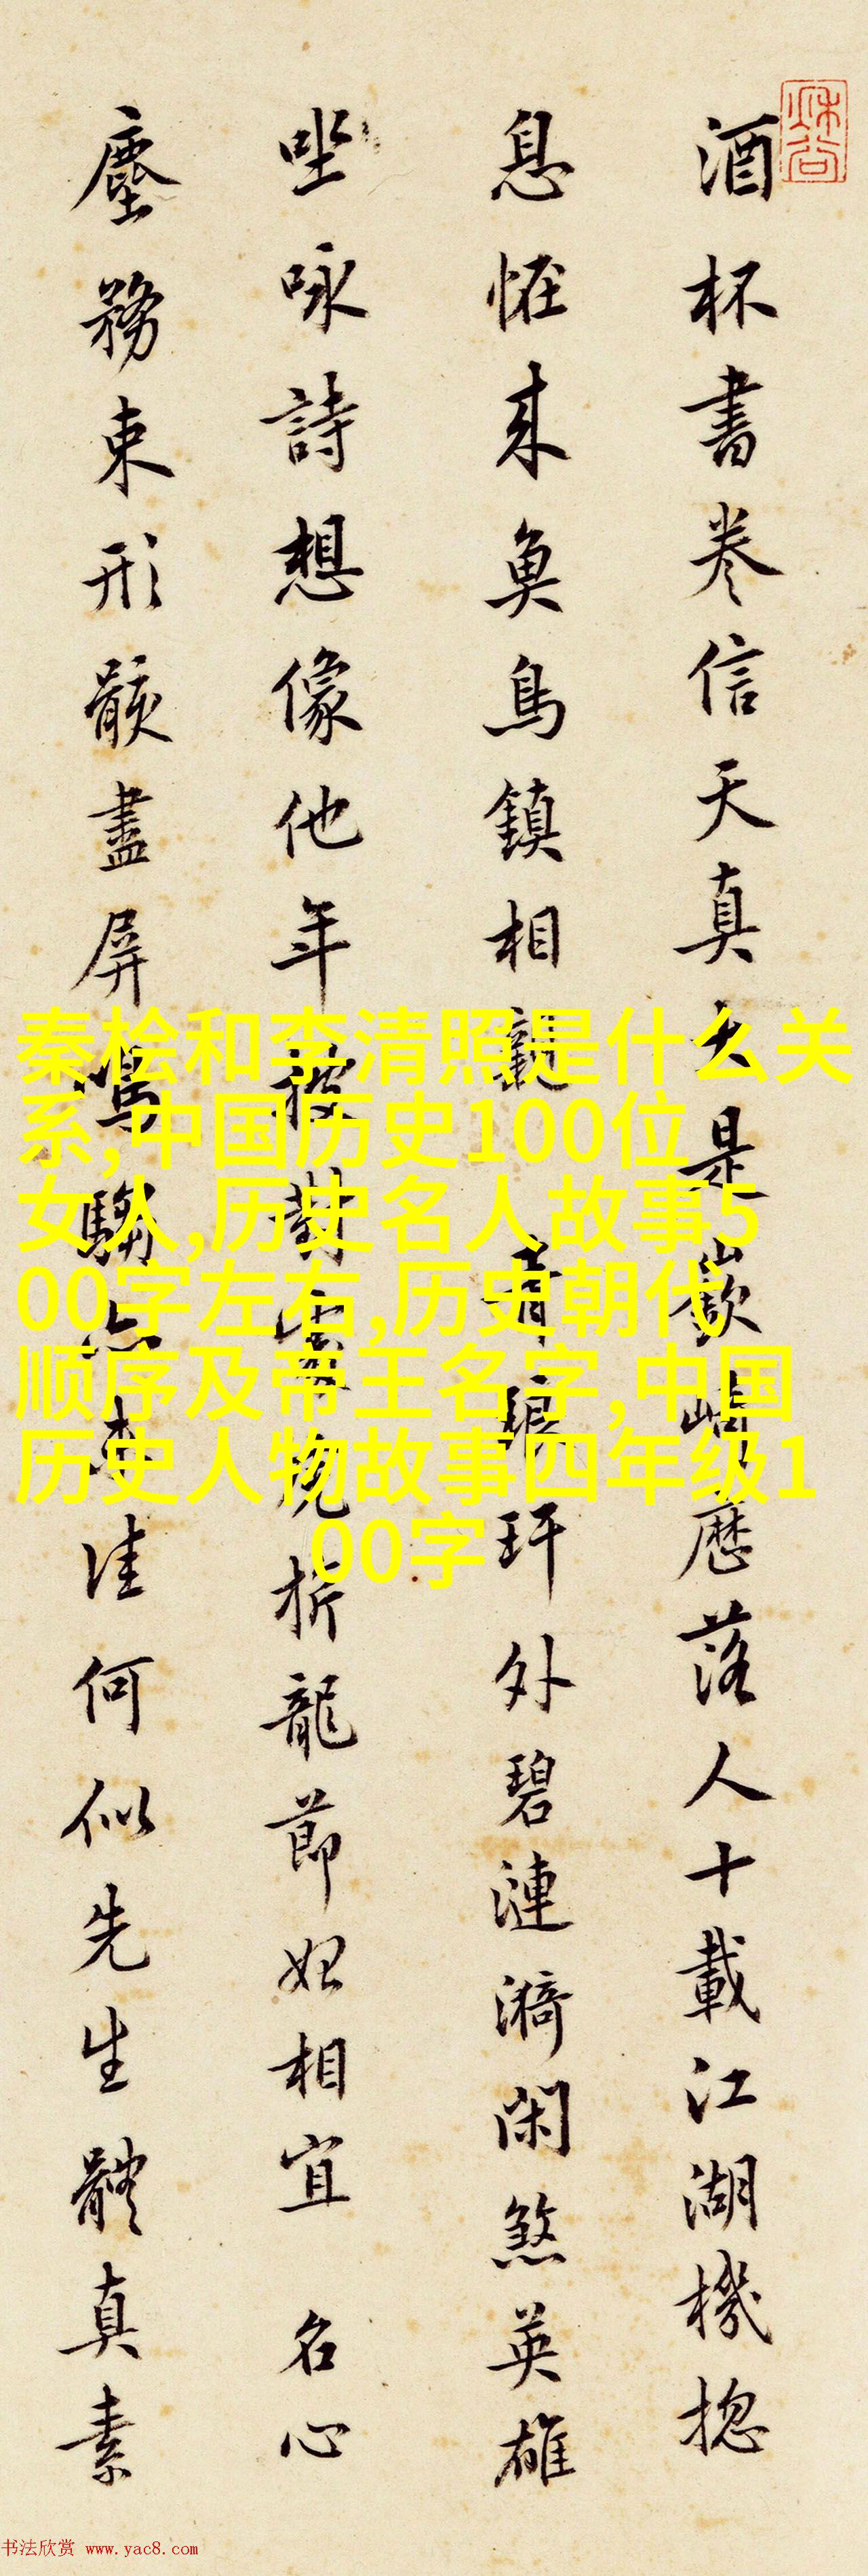 酒杯書卷信天真大是嶔崎歷落人十載江湖機揔
息恠来魚鳥鎮相親青琅玕外碧漣漪閑煞英雄
坐咏詩想像他年對晚折龍節相宜名心
塵務束形骸盡屏鳴騶佳何似先生體真素
秦桧和李清照是什么关
系,中国历史100位
女人,历史名人故事5
00字左右,历史朝代
顺序及帝王名字,中国
历史人物故事四年级1
00字
书法欣赏 www.yac8.com